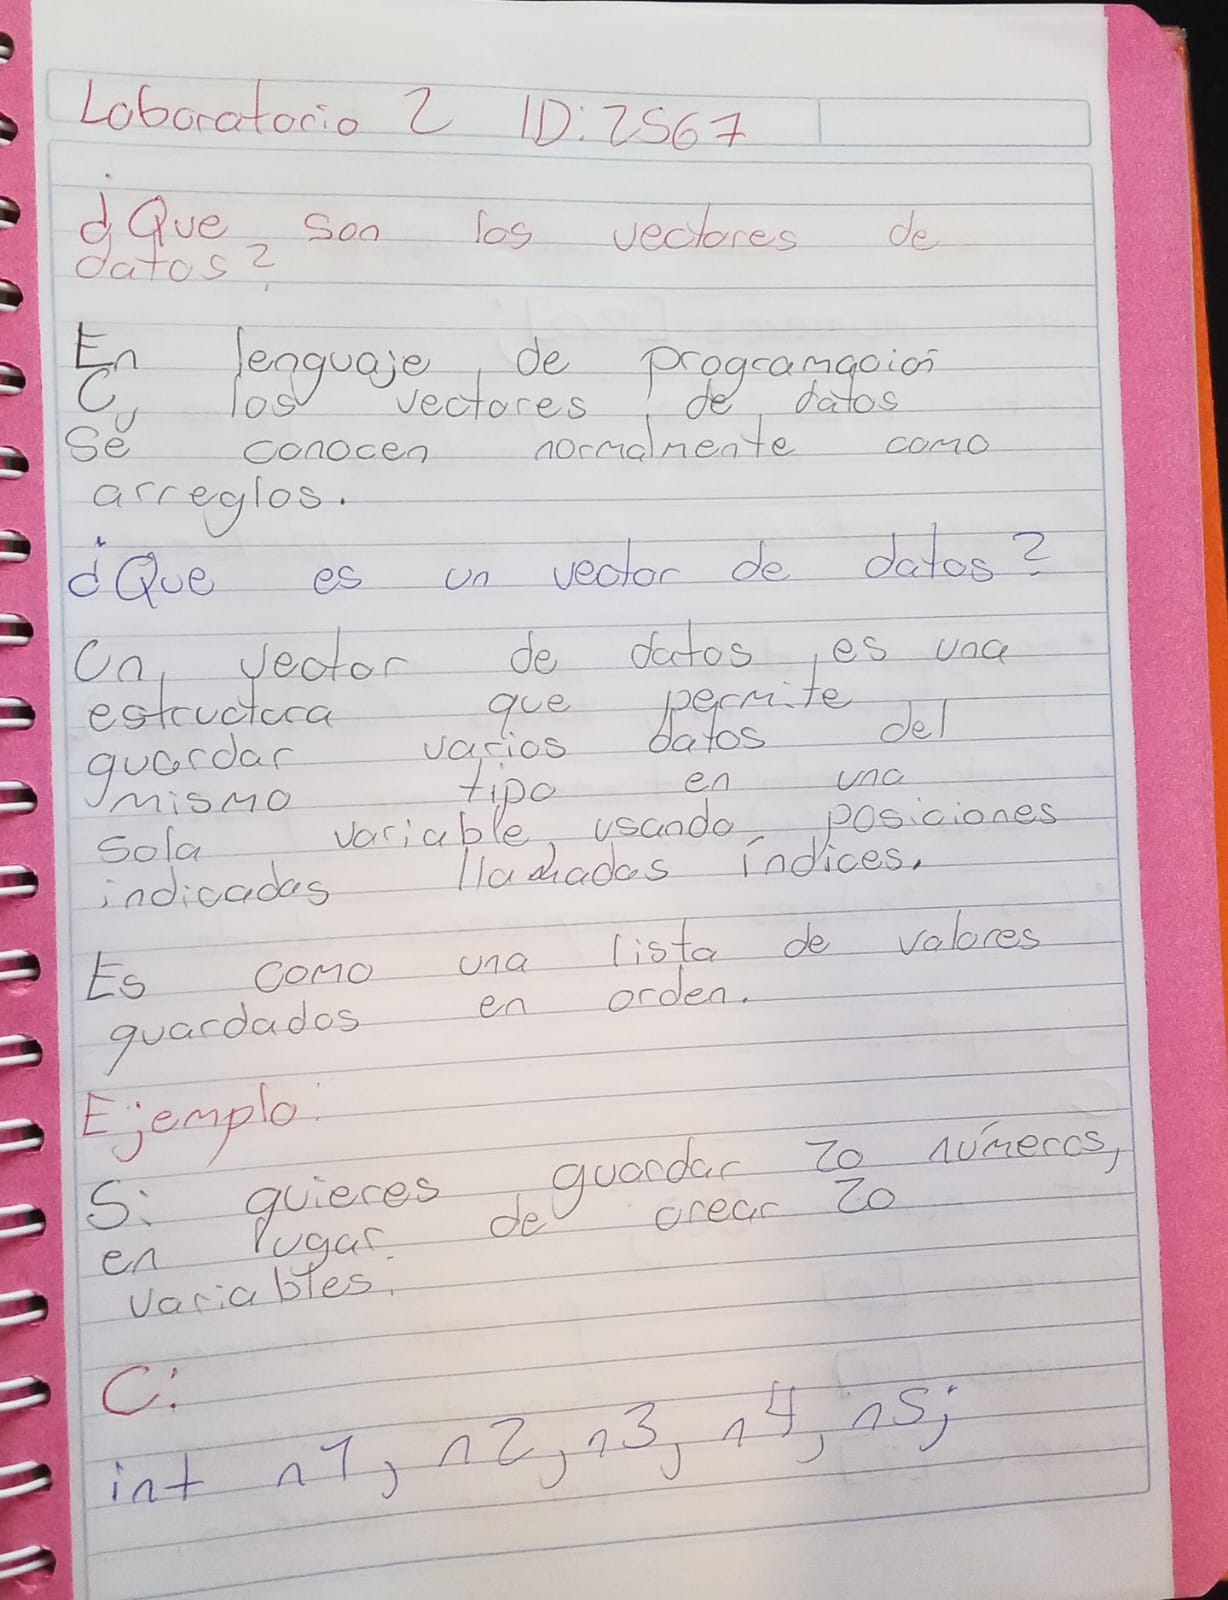 Laboratorio 2 ID: 2567
¿Que son los vectores de
datos?
En lenguaje de programación
C, los vectores de datos
se conocen normalmente como
arreglos.
¿Que es un vector de datos?
Un vector de datos es una
estructura que permite
guardar varios datos del
mismo tipo en una
sola variable, usando posiciones
indicadas llamadas índices.
Es como una lista de valores
guardados en orden.
Ejemplo:
Si quieres guardar 20 números,
en lugar de crear 20
variables.
C:
int n1, n2, n3, n4, n5;